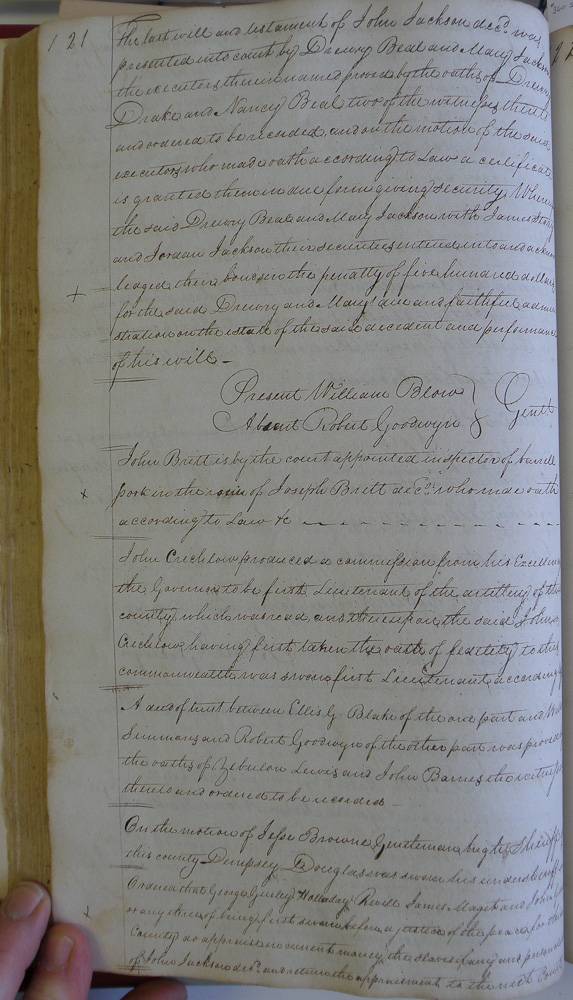 121
The last will and testament of John Jackson decd. was
presented into court by Drewry Beal and Mary Jackson
the executors therein named proved by the oaths of Drewry
Drake and Nancy Beal two of the witnesses thereto
and ordered to be recorded, and on the motion of the said
executors who made oath according to Law a certificate
is granted them in due form giving security. Whereupon
the said Drewry Beal and Mary Jackson with James
and Jordan Jackson their securities entered into and acknow
ledged their bond in the penalty of five hundred dollars
for the said Drewry and Mary's due and faithful admini
stration on the estate of the said decedent and performance
of his will -
Present William Blow } Gent.
Absent Robert Goodwyn
John Britt is by the court appointed inspector of barrell
pork in the room of Joseph Britt decd. who made oath
according to Law &c
John Crichlow produced a commission from his Excellency
the Governor to be first Lieutenant of the artillery of this
county, which was read, and thereupon the said John
Crichlow having first taken the oath of fedelity to this
commonwealth was sworn first Lieutenant according
A deed of trust between Ellis G. Blake of the one part and
Simmons, and Robert Goodwyn of the other part was proved
the oaths of Zebulon Lewis and John Barnes the witnesses
thereto and ordered to be recorded -
On the motion of Jesse Browne Gentleman high Sheriff
this county Dempsey Douglas was sworn his under sheriff
Ordered that George Gurley, Holladay Revell James Maget and John
or any three of being first sworn before a justice of the peace for this
County do appraise in current money, the slaves if any and personal
of John Jackson decd. and return the appraisement to the next Court